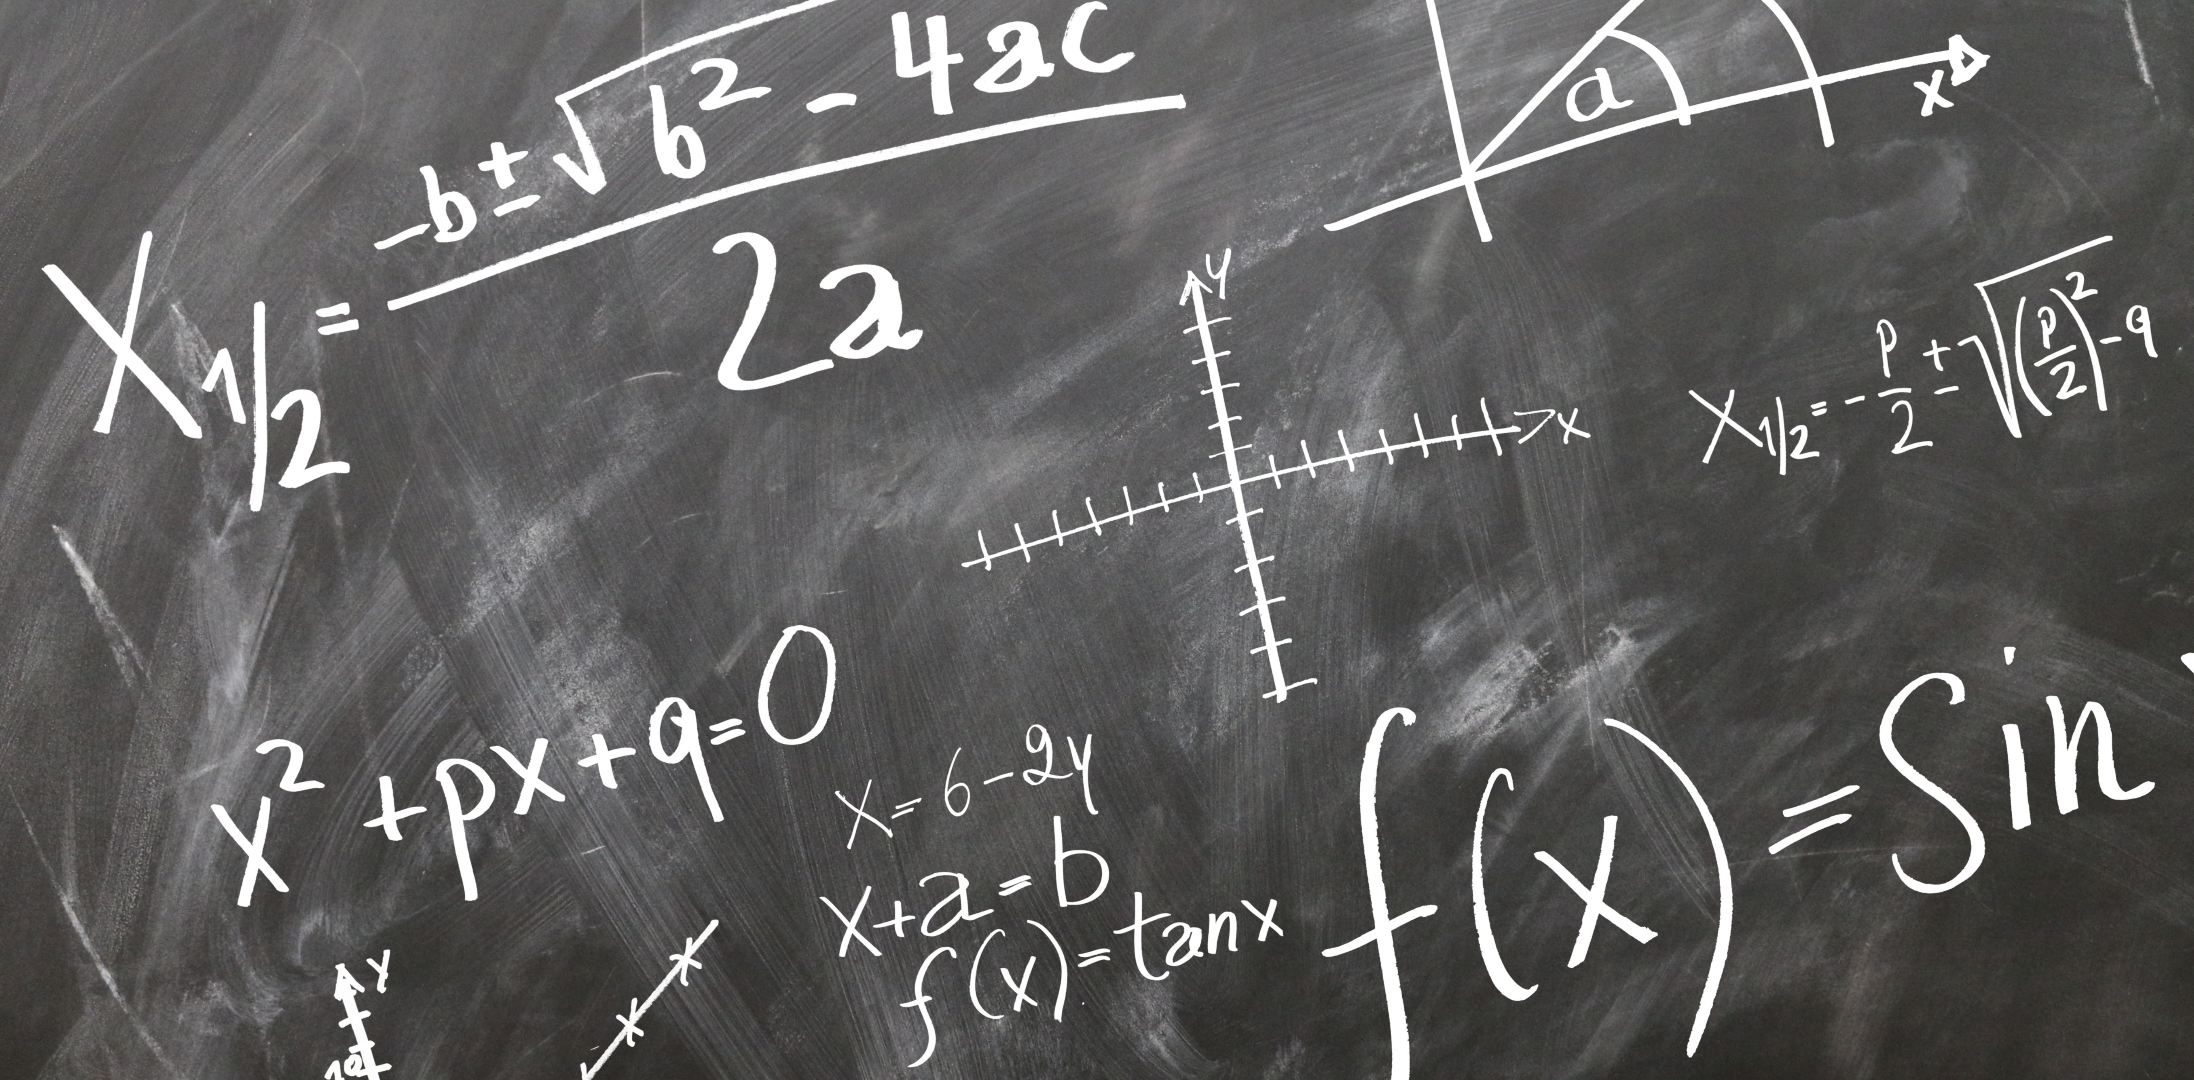 X1/2 = -b ± √b² - 4ac / 2a
a
x
y
x
X1/2 = - p/2 ± √(p/2)² - q
x² + px + q = 0
x = 6 - 2y
x + a = b
f(x) = tan x
f(x) = Sin
y
10